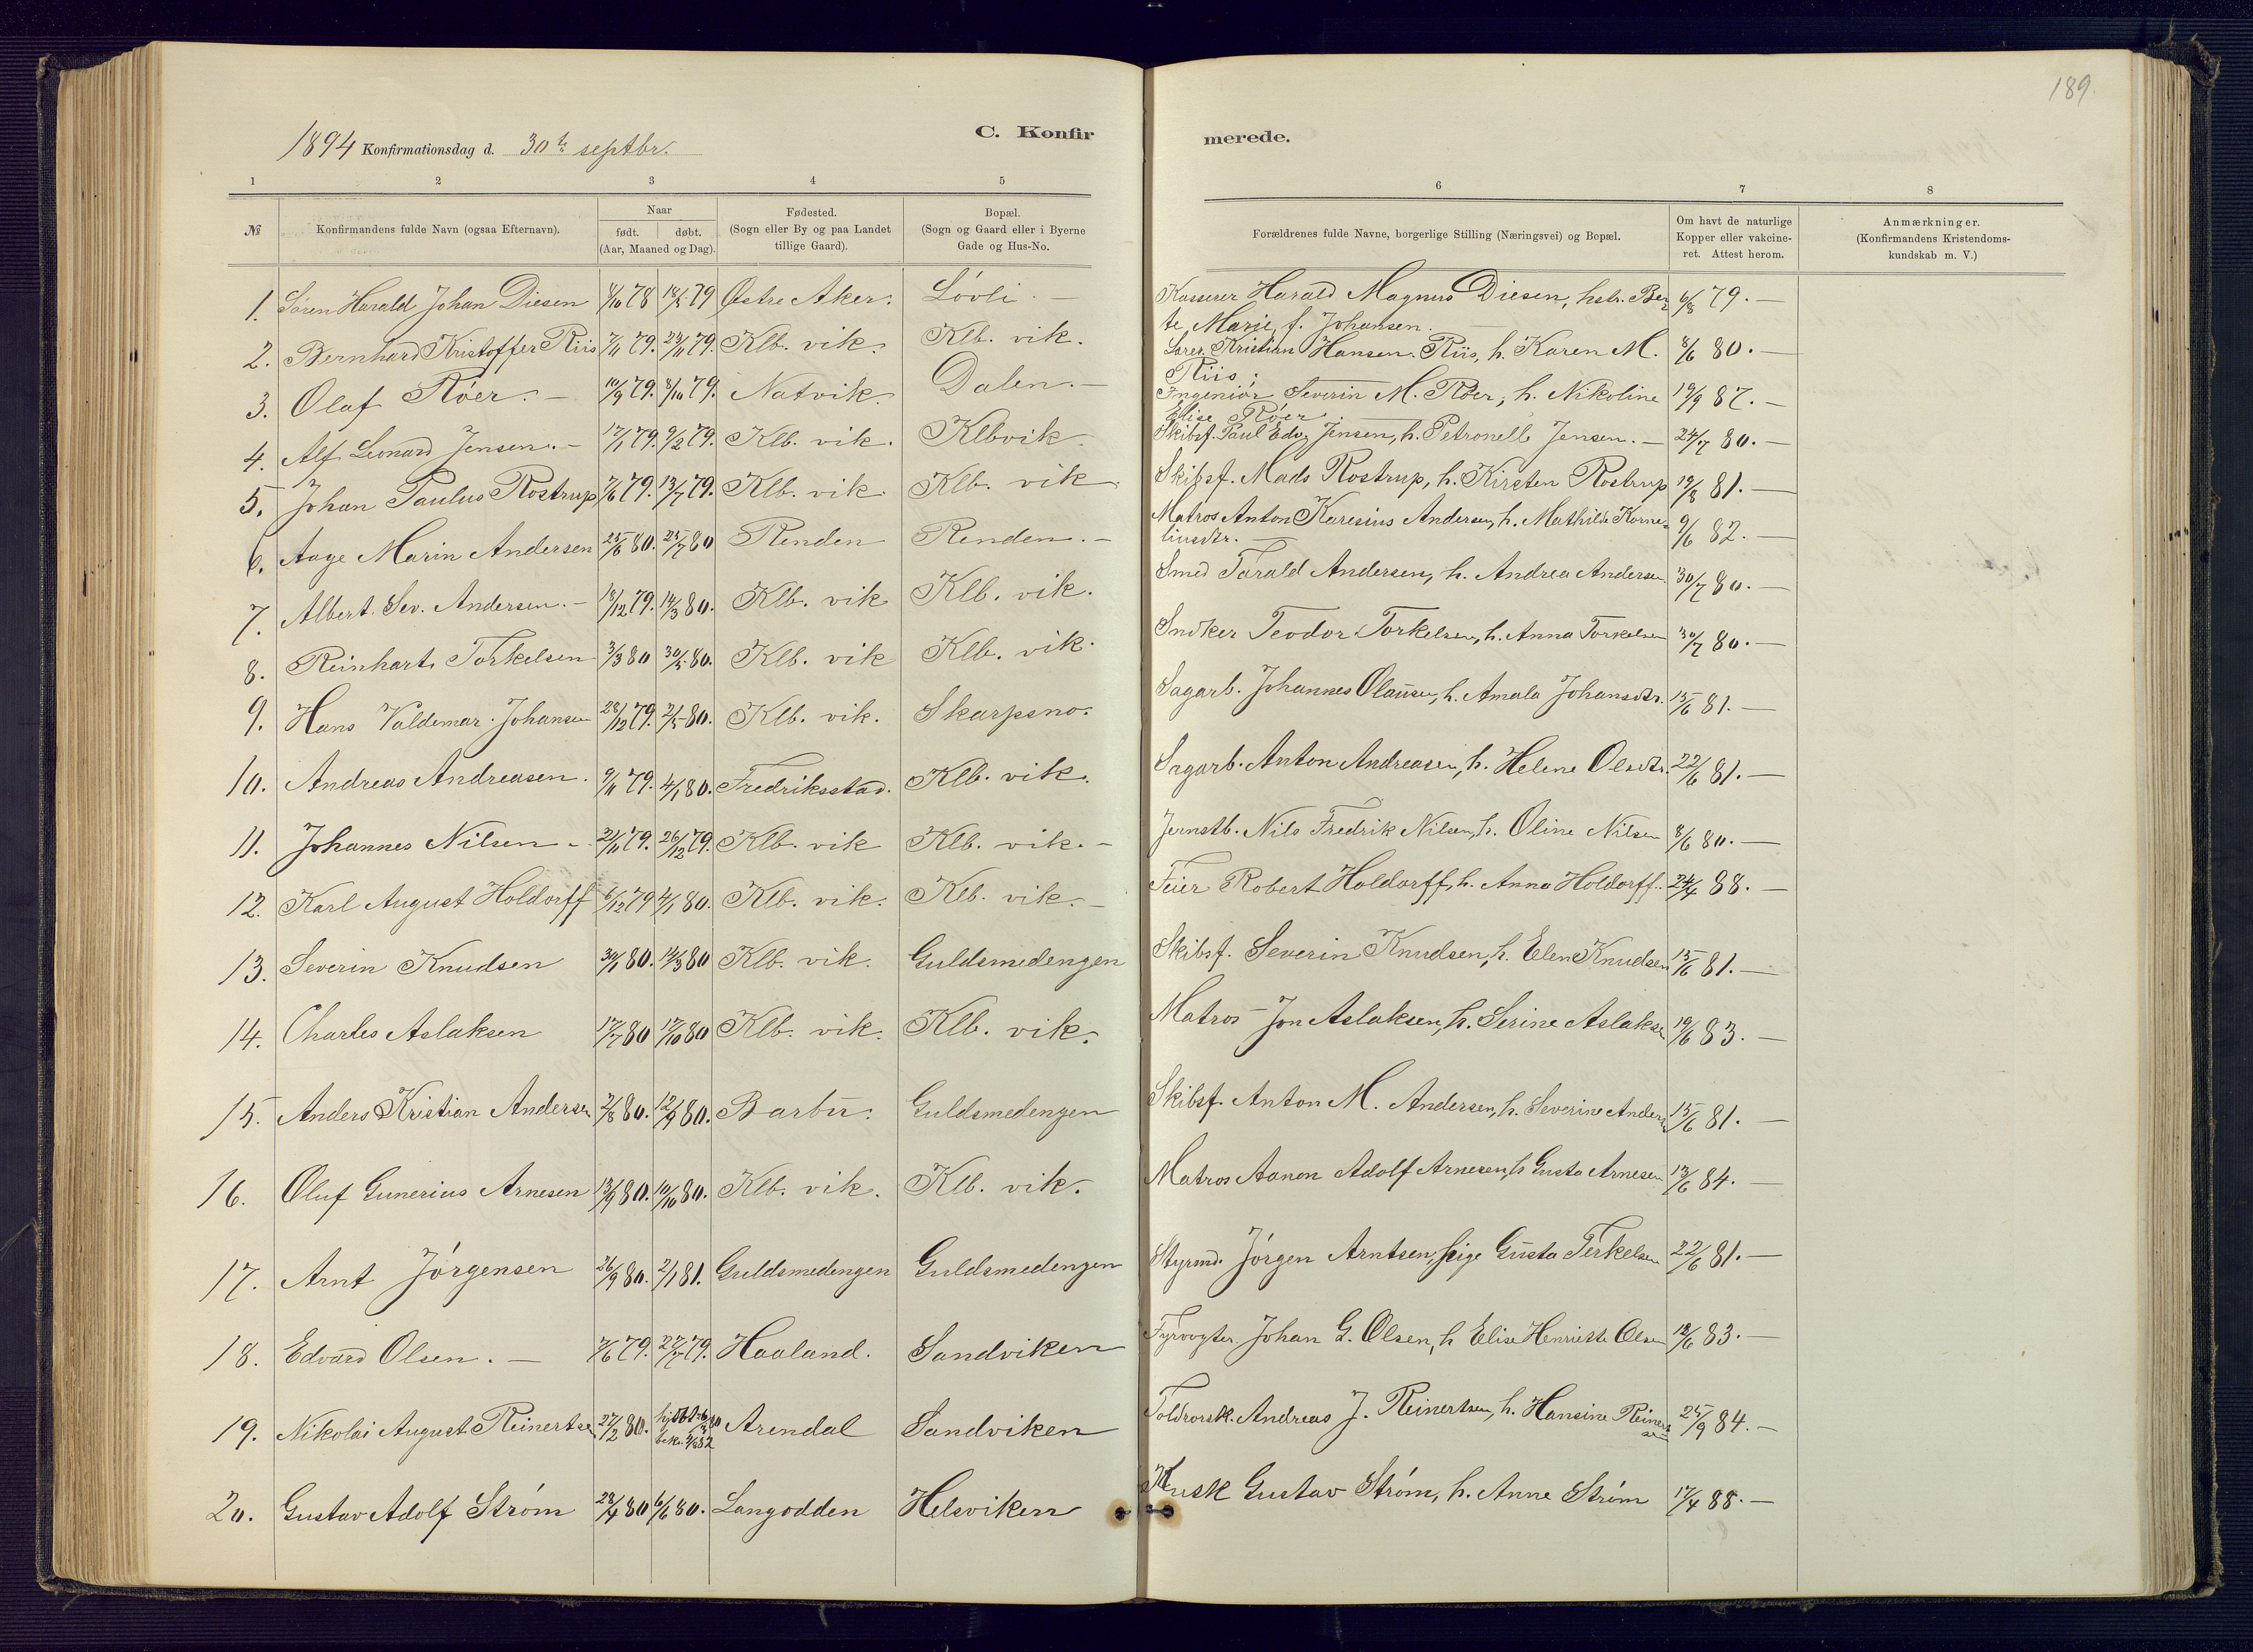 189.
C. Konfirmerede.
1894 Konfirmationsdag d. 30te septbr.
1 2 3 4 5 6 7 8
№ Konfirmandens fulde Navn (ogsaa Efternavn). Naar født. døbt. (Aar, Maaned og Dag). Fødested. (Sogn eller By og paa Landet tillige Gaard). Bopæl. (Sogn og Gaard eller i Byerne Gade og Hus-No. Forældrenes fulde Navne, borgerlige Stilling (Næringsvei) og Bopæl. Om havt de naturlige Kopper eller vakcineret. Attest herom. Anmærkninger. (Konfirmandens Kristendomskundskab m. V.)
1. Søren Harald Johan Diesen 8/10 78 18/5 79 Østre Aker. Lövli. Kasserer Harald Magnus Diesen, hstr. Ber-
te Marie f. Johansen. 6/8 79. —
2. Bernhard Kristoffer Riis 7/11 79. 23/11 79. Klb. vik. Klb. vik. Kristian Hansen Riis, h. Karen M.
Riis. 8/6 80. —
3. Olaf Röer. — 10/9 79. 8/10 79. Natvik. Dalen. — Ingeniör Severin M. Röer, h. Nikoline
Elise Röer 19/9 87. —
4. Alf Leonard Jensen. — 17/1 79. 9/2 79. Klb. vik. Klbvik. Skibsf. Paul Edv. Jensen, h. Petronelle Jensen. — 24/7 80. —
5. Johan Paulus Rostrup 7/6 79. 13/7 79. Klb. vik. Klb. vik. Skibsf. Mads Rostrup, h. Kirsten Rostrup 19/8 81. —
6. Aage Marin Andersen 25/6 80. 25/7 80 Renden Renden. — Matros Anton Karesius Andersen, h. Mathilde Korne-
liusdtr. 9/6 82. —
7. Albert Sev. Andersen. — 18/12 79. 14/3 80. Klb. vik Klb. vik. Smed Tarald Andersen, h. Andrea Andersen. 30/7 80. —
8. Reinhart Torkelsen 3/3 80 30/5 80. Klb. vik Klb. vik. Sndker Teodor Torkelsen, h. Anna Torkelsen 30/7 80. —
9. Hans Valdemar Johansen 28/12 79. 2/5 80. Klb. vik. Skarpsno. Sagarb. Johannes Olausen, h. Amala Johansdtr. 15/6 81. —
10. Andreas Andreasen. 9/11 79. 4/1 80. Fredriksstad. Klb. vik. Sagarb. Anton Andreasen, h. Helene Olsdtr. 22/6 81. —
11. Johannes Nilsen — 21/11 79. 26/12 79. Klb. vik Klb. vik. — Jernstb. Nils Fredrik Nilsen, h. Oline Nilsen 8/6 80. —
12. Karl August Holdorff 6/12 79 4/1 80. Klb. vik. Klb. vik. — Feier Robert Holdorff, h. Anna Holdorff. 24/4 88. —
13. Severin Knudsen 30/1 80. 14/3 80 Klb. vik. Guldsmedengen Skibsf. Severin Knudsen, h. Elen Knudsen 15/6 81. —
14. Charles Aslaksen 17/7 80 17/10 80 Klb. vik. Klb. vik. Matros Jon Aslaksen, h. Serine Aslaksen 19/6 83. —
15. Anders Kristian Andersen 2/8 80. 12/9 80. Barbu. Guldsmedengen Skibsf. Anton M. Andersen, h. Severine Andersen 15/6 81. —
16. Oluf Gunerius Arnesen 13/9 80. 10/10 80. Klb. vik. Klb. vik. Matros Aanon Adolf Arnesen, h Gusta Arnesen 13/6 84. —
17. Arnt Jörgensen 26/9 80. 2/1 81. Guldsmedengen Guldsmedengen Styrmd. Jörgen Arntsen, pige Gusta Terkelsen 22/6 81. —
18. Edvard Olsen. — 7/6 79. 27/7 79. Haaland. Sandviken Fyrvogter Johan G. Olsen, h Elise Henriette Olsen 18/6 83. —
19. Nikolai August Reinertsen 27/2 80. Arendal Sandviken Toldrorsk. Andreas J. Reinertsen, h. Hansine Reinertsen 25/9 84. —
20. Gustav Adolf Ström 28/4 80 6/6 80. Langodden Helsviken Kusk Gustav Ström, h. Anne Ström 17/4 88. —